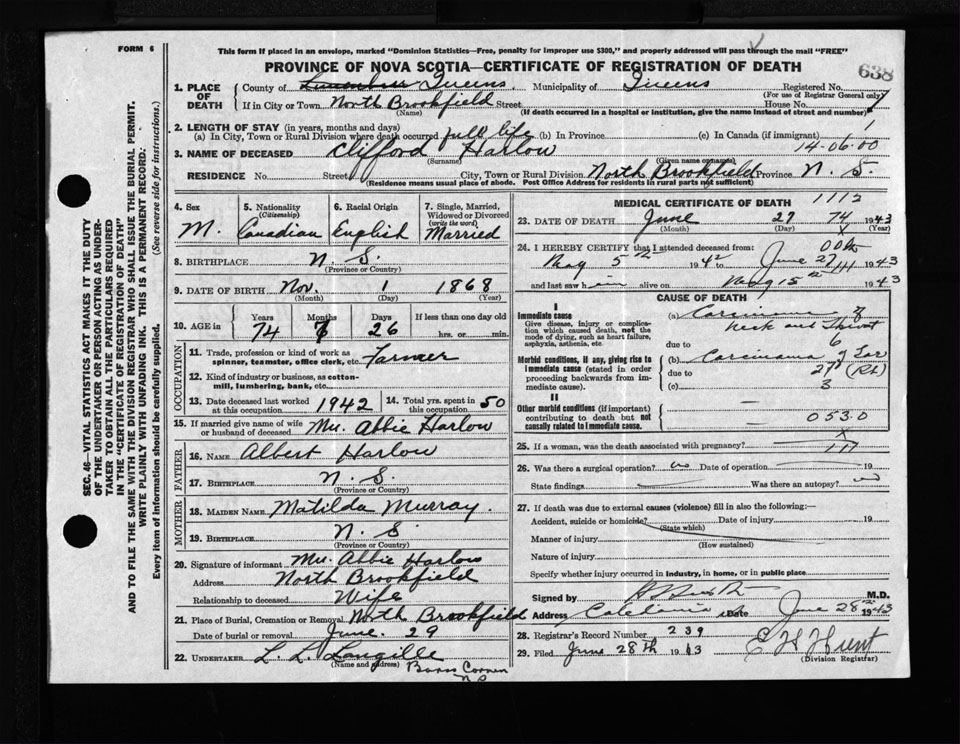 FORM 6
This form if placed in an envelope, marked "Dominion Statistics—Free, penalty for improper use $300," and properly addressed will pass through the mail "FREE"
PROVINCE OF NOVA SCOTIA—CERTIFICATE OF REGISTRATION OF DEATH
638
1. PLACE OF DEATH
County of Lunenburg Queens Municipality of Queens Registered No.
(For use of Registrar General only)
If in City or Town North Brookfield Street House No.
(Name) (If death occurred in a hospital or institution, give the name instead of street and number)
2. LENGTH OF STAY (in years, months and days)
(a) In City, Town or Rural Division where death occurred full life (b) In Province (c) In Canada (if immigrant)
3. NAME OF DECEASED Clifford Harlow 14-06.00
(Surname) (Given name or names)
RESIDENCE No. Street City, Town or Rural Division North Brookfield Province N. S.
(Residence means usual place of abode. Post Office Address for residents in rural parts not sufficient)
4. Sex 5. Nationality (Citizenship) 6. Racial Origin 7. Single, Married, Widowed or Divorced (write the word)
M. Canadian English Married
8. BIRTHPLACE N. S.
(Province or Country)
9. DATE OF BIRTH Nov. 1 1868
(Month) (Day) (Year)
10. AGE in Years Months Days If less than one day old
74 7 26 hrs. or min.
OCCUPATION
11. Trade, profession or kind of work as spinner, teamster, office clerk, etc. Farmer
12. Kind of industry or business, as cotton-mill, lumbering, bank, etc.
13. Date deceased last worked at this occupation 1942 14. Total yrs. spent in this occupation 50
15. If married give name of wife or husband of deceased Mrs. Abbie Harlow
FATHER
16. NAME Albert Harlow
17. BIRTHPLACE N. S.
(Province or Country)
MOTHER
18. MAIDEN NAME Matilda Murray
19. BIRTHPLACE N. S
(Province or Country)
20. Signature of informant Mrs. Abbie Harlow
Address North Brookfield
Relationship to deceased Wife
21. Place of Burial, Cremation or Removal North Brookfield
Date of burial or removal June. 29
22. UNDERTAKER L. L. Langille
(Name and address) Barss Corner
N S
MEDICAL CERTIFICATE OF DEATH 1112
23. DATE OF DEATH June 27 74 1943
(Month) (Day) (Year)
24. I HEREBY CERTIFY that I attended deceased from:
May 5th 1942 to June 27 1943
and last saw him alive on May 15th 1943
CAUSE OF DEATH
I
Immediate cause
Give disease, injury or complication which caused death, not the mode of dying, such as heart failure, asphyxia, asthenia, etc.
(a) Carcinoma of neck and throat
due to
6
Morbid conditions, if any, giving rise to immediate cause (stated in order proceeding backwards from immediate cause).
(b) Carcinoma of Ear
due to (Rt)
(c) 3
II
Other morbid conditions (if important) contributing to death but not causally related to immediate cause.
053.0
25. If a woman, was the death associated with pregnancy?
26. Was there a surgical operation? no Date of operation 19
State findings Was there an autopsy? no
27. If death was due to external causes (violence) fill in also the following:—
Accident, suicide or homicide? Date of injury 19
(State which)
Manner of injury
(How sustained)
Nature of injury
Specify whether injury occurred in industry, in home, or in public place
Signed by M.D.
Address Caledonia Date June 28th 1943
28. Registrar's Record Number 239
29. Filed June 28th 1943 E H Hunt
(Division Registrar)
SEC. 46—VITAL STATISTICS ACT MAKES IT THE DUTY
OF THE UNDERTAKER OR PERSON ACTING AS UNDER-
TAKER TO OBTAIN ALL THE PARTICULARS REQUIRED
IN THE "CERTIFICATE OF REGISTRATION OF DEATH"
AND TO FILE THE SAME WITH THE DIVISION REGISTRAR WHO SHALL ISSUE THE BURIAL PERMIT.
WRITE PLAINLY WITH UNFADING INK. THIS IS A PERMANENT RECORD.
Every item of information should be carefully supplied. (See reverse side for instructions.)